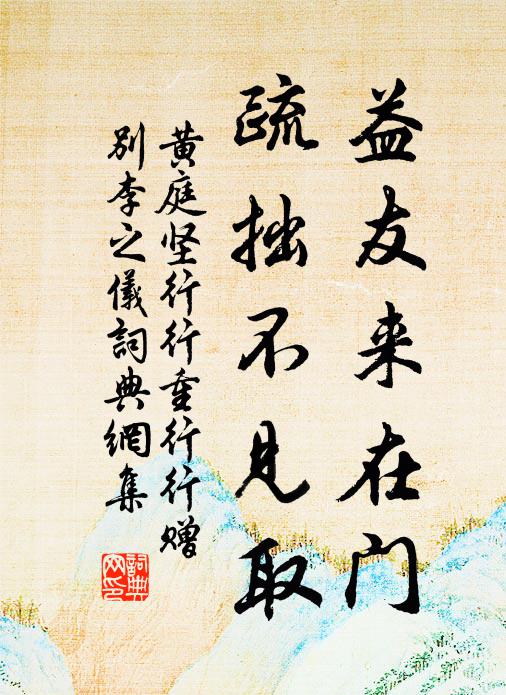 益友来在门
疏拙不见取
黄庭坚行行重行行赠
别李之儀詞典網集
詞典
网印